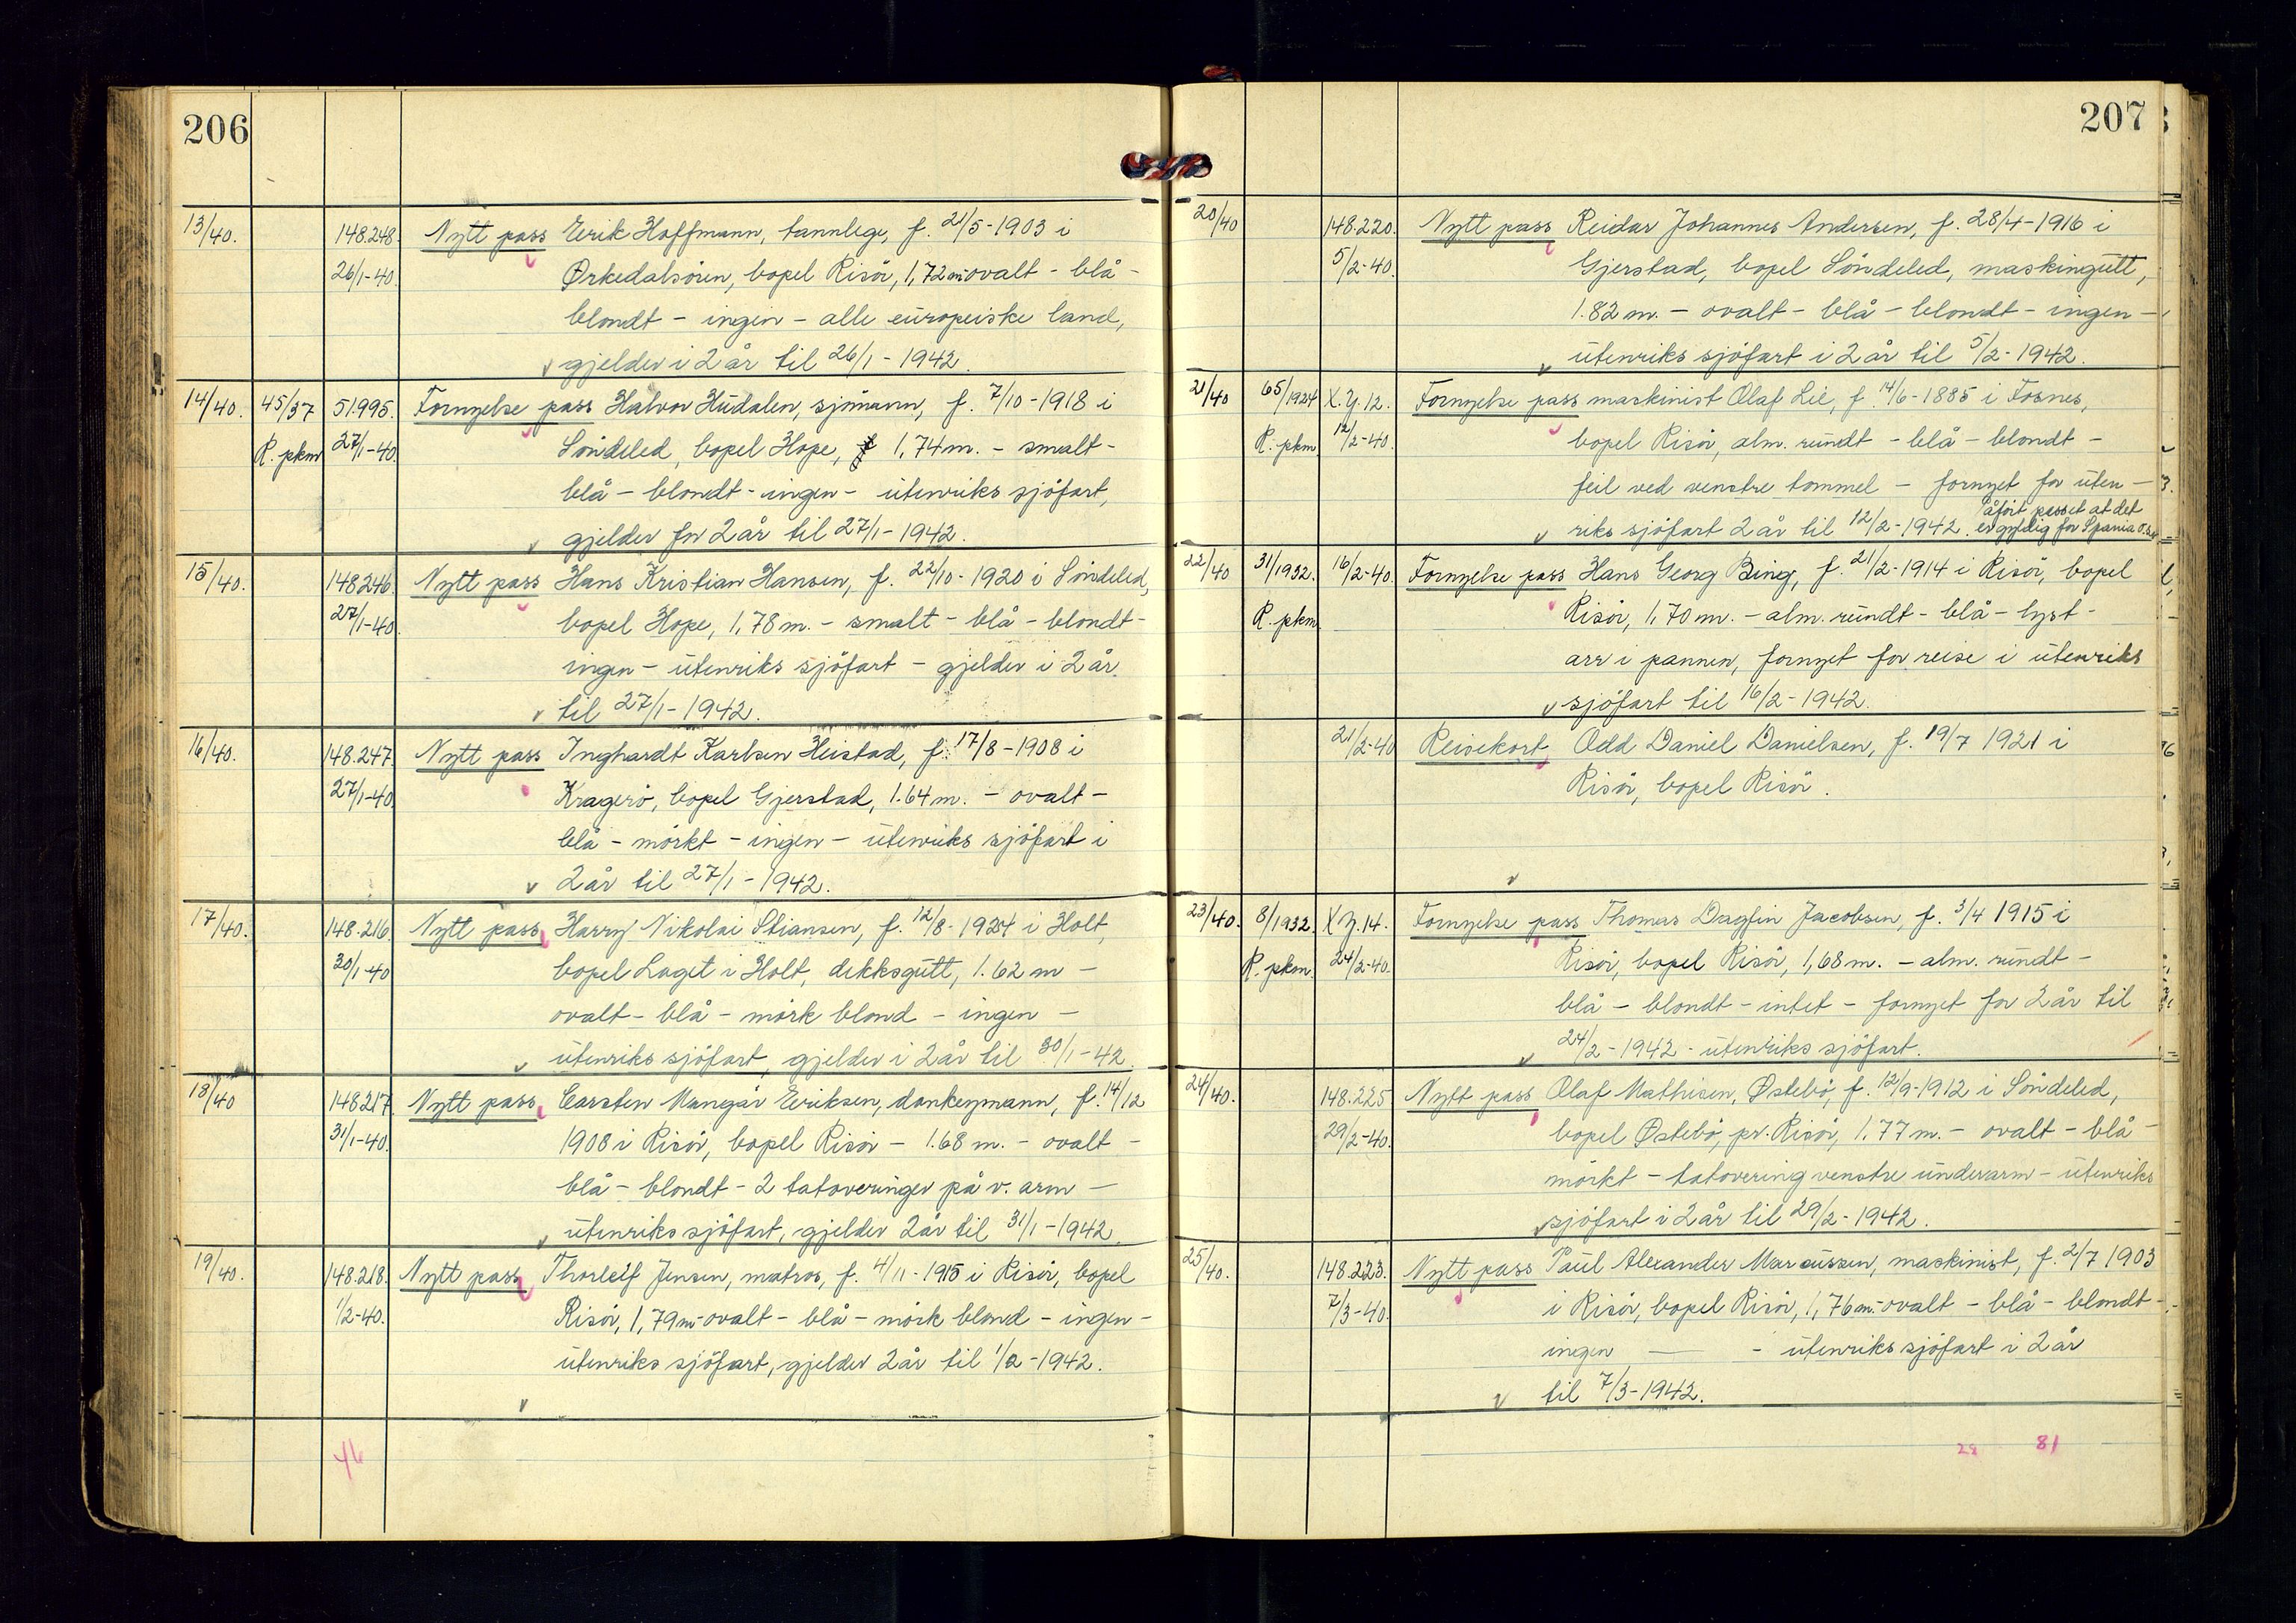 206
13/40. 148.248. Nytt pass Erik Hoffmann, tannlege, f. 21/5-1903 i
26/1-40. Ørkedalsören, bopel Risör, 1,72 m ovalt - blå -
blondt - ingen - alle europeiske land,
gjelder i 2 år til 26/1 - 1942.
14/40. 45/37 51.995. Fornyelse pass Halvor Hüdalen, sjömann, f. 7/10-1918 i
R. pkm 27/1-40. Söndeled, bopel Hope, 1,74 m. - smalt -
blå - blondt - ingen - ütenriks sjöfart,
gjelder for 2 år til 27/1 - 1942.
15/40. 148.246. Nytt pass Hans Kristian Hansen, f. 22/10-1920 i Söndeled,
27/1-40. bopel Hope, 1,78 m. - smalt - blå - blondt -
ingen - ütenriks sjöfart - gjelder i 2 år
til 27/1 - 1942.
16/40. 148.247. Nytt pass Inghardt Karlsen Heistad, f. 17/8-1908 i
27/1-40 Kragerö, bopel Gjerstad, 1.64 m. - ovalt -
blå - mörkt - ingen - ütenriks sjöfart i
2 år til 27/1 - 1942.
17/40. 148.216. Nytt pass Harry Nikolai Stiansen, f. 12/8-1924 i Holt,
30/1-40 bopel Laget i Holt, dekksgütt, 1.62 m -
ovalt - blå - mörk blond - ingen -
ütenriks sjöfart, gjelder i 2 år til 30/1-42.
18/40 148.217. Nytt pass Carsten Mangår Eriksen, donkeymann, f. 14/12
31/1-40. 1908 i Risör, bopel Risör - 1.68 m. - ovalt -
blå - blondt - 2 tatoveringer på v. arm -
ütenriks sjöfart, gjelder 2 år til 31/1-1942.
19/40. 148.218. Nytt pass Thorleif Jensen, matros, f. 4/11-1915 i Risör, bopel
1/2-40. Risör, 1,79 m ovalt - blå - mörk blond - ingen -
ütenriks sjöfart, gjelder 2 år til 1/2-1942.
46
207
20/40 148.220. Nytt pass Reidar Johannes Andersen, f. 28/4-1916 i
5/2-40. Gjerstad, bopel Söndeled, maskingütt,
1.82 m. - ovalt - blå - blondt - ingen -
ütenriks sjöfart i 2 år til 5/2-1942.
21/40 65/1924 X.Y.12. Fornyelse pass maskinist Olaf Lie, f. 14/6-1885 i Fosnes,
R. pkm 12/2-40. bopel Risör, alm. ründt - blå - blondt -
feil ved venstre tommel - fornyet for üten -
påfört passet at det
riks sjöfart 2 år til 12/2-1942. er gyldig for Spania o.s.v.
22/40 31/1932. 16/2-40. Fornyelse pass Hans Georg Bing, f. 21/2-1914 i Risör, bopel
R. pkm Risör, 1,70 m. - alm. ründt - blå - lyst -
arr i pannen, fornyet for reise i ütenriks
sjöfart til 16/2-1942.
21/2-40 Reisekort, Odd Daniel Danielsen, f. 19/7 1921 i
Risör, bopel Risör.
23/40. 8/1932. X.Y.14. Fornyelse pass Thomas Dagfin Jacobsen, f. 3/4 1915 i
R. pkm. 24/2-40. Risör, bopel Risör, 1,68 m. - alm. ründt -
blå - blondt - intet - fornyet for 2 år til
24/2-1942 - ütenriks sjöfart.
24/40. 148.225 Nytt pass Olaf Mathisen, Østebö, f. 12/9-1912 i Söndeled,
29/2-40. bopel Østebö, pr. Risör, 1.77 m. - ovalt - blå -
mörkt - tatovering venstre ünderarm - ütenriks
sjöfart i 2 år til 29/2-1942.
25/40. 148.223. Nytt pass Paül Alexander Marcüssen, maskinist, f. 2/7 1903
7/3-40. i Risör, bopel Risör, 1,76 m. ovalt - blå - blondt -
ingen - ütenriks sjöfart i 2 år
til 7/3-1942.
28 81